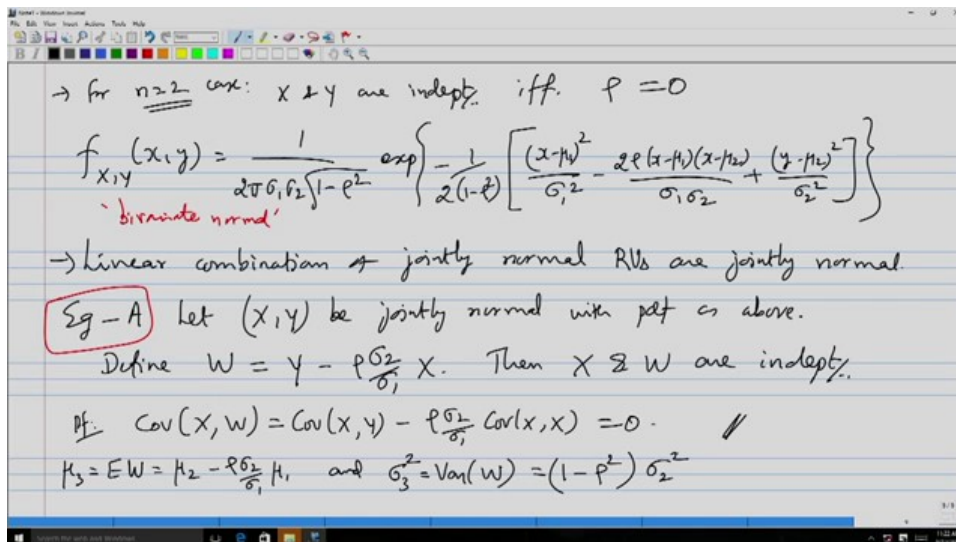 File Edit View Insert Actions Tools Help
B I
→ for n=2 case: X & Y are indept. iff. ρ = 0
f_{X,Y}(x,y) = 1/(2πσ₁σ₂√(1-ρ²)) exp{ -1/(2(1-ρ²)) [ (x-μ₁)²/σ₁² - 2ρ(x-μ₁)(x-μ₂)/(σ₁σ₂) + (y-μ₂)²/σ₂² ] }
'bivariate normal'
→ Linear combination of jointly normal RVs are jointly normal.
Eg-A Let (X,Y) be jointly normal with pdf as above.
Define W = Y - ρ σ₂/σ₁ X. Then X & W are indept.
Pf: Cov(X,W) = Cov(X,Y) - ρσ₂/σ₁ Cov(X,X) = 0. //
μ₃ = EW = μ₂ - ρσ₂/σ₁ μ₁ and σ₃² = Var(W) = (1-ρ²) σ₂²
1/1
Search the web and Windows